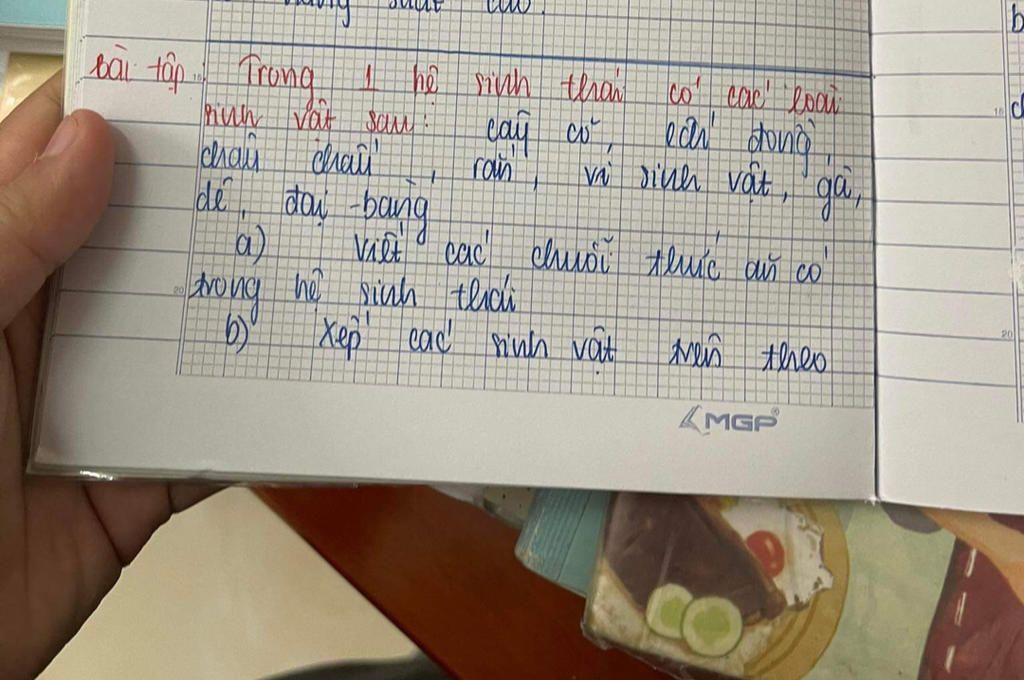 năng suất cao.
bài tập: Trong 1 hệ sinh thái có các loài
sinh vật sau: cây cỏ, cầy,
châu chấu, rắn, vi sinh vật, gà,
dê, đại bàng
a) Viết các chuỗi thức ăn có
trong hệ sinh thái
b) Xếp các sinh vật trên theo
MGP